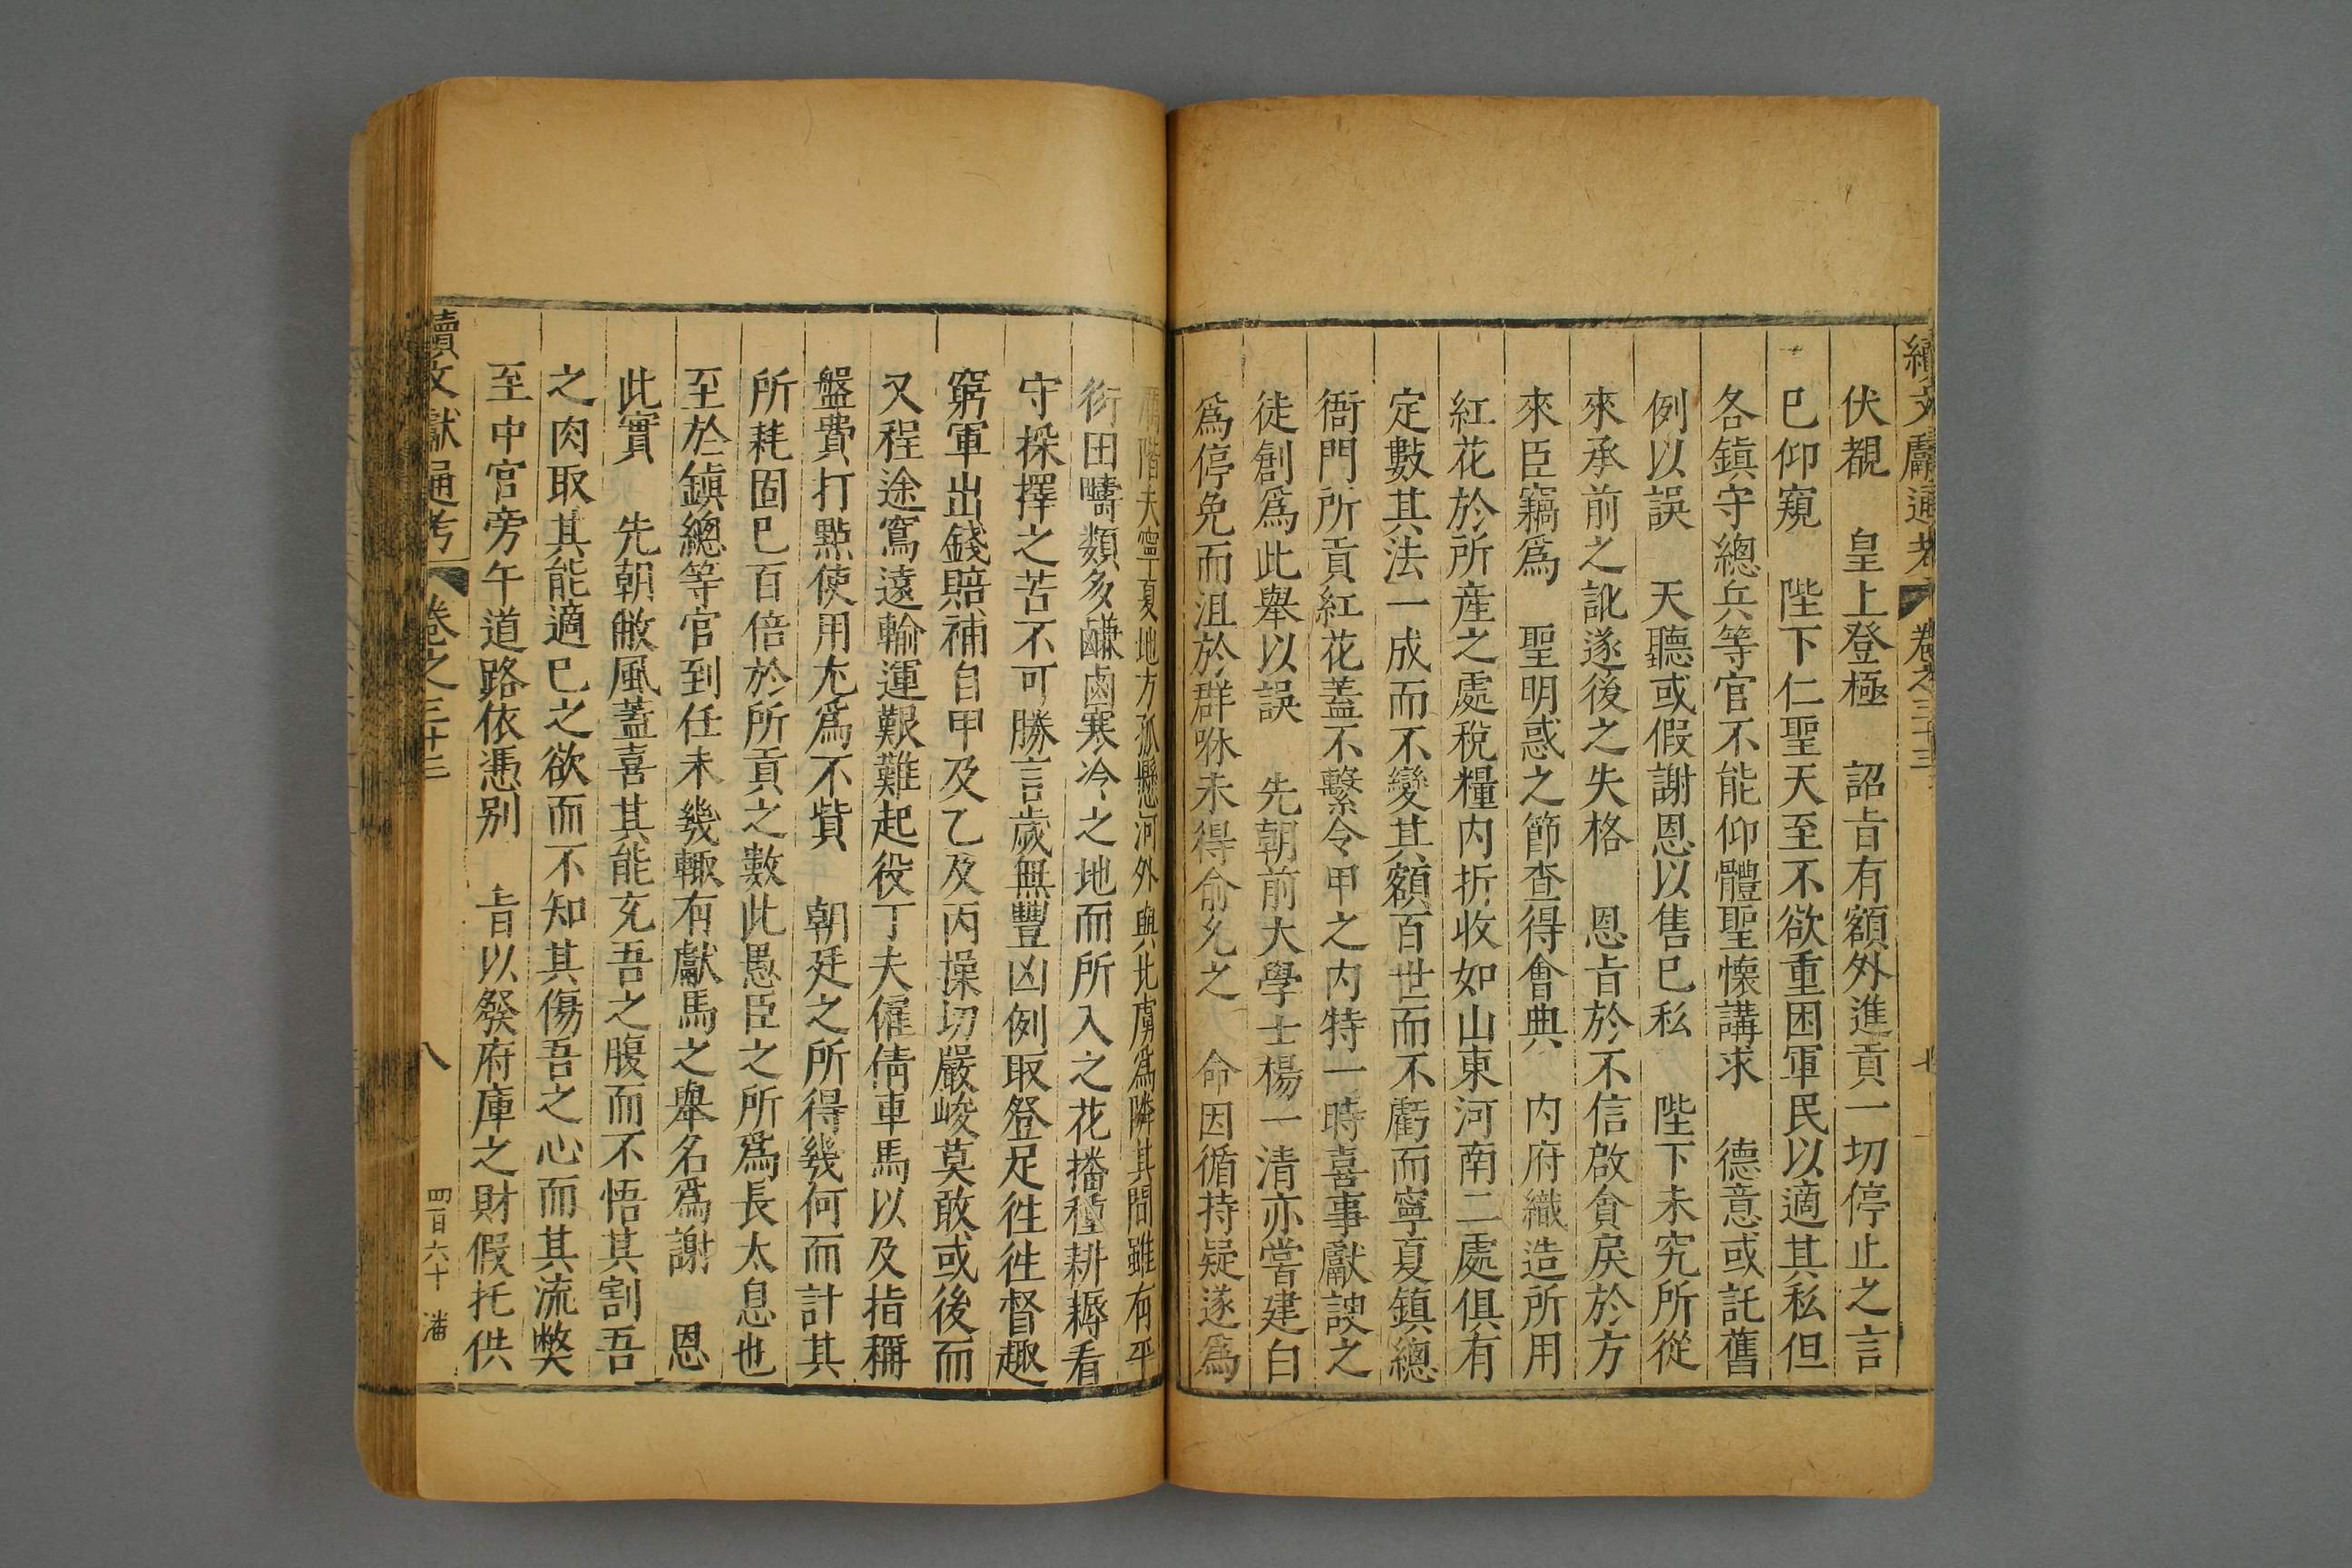 續文獻通考 卷之三十三 七
伏覩 皇上登極 詔㫖有額外進貢一切停止之言
巳仰窺 陛下仁聖天至不欲重困軍民以適其私但
各鎮守總兵等官不能仰體聖懷講求 德意或託舊
例以誤 天聽或假謝恩以售巳私 陛下未究所從
來承前之訛遂後之失格 恩㫖於不信啟貪戾於方
來臣竊爲 聖明惑之節查得會典 内府織造所用
紅花於所産之處稅糧内折收如山東河南二處俱有
定數其法一成而不變其額百世而不虧而寧夏鎮總
衙門所貢紅花蓋不繫令甲之内特一時喜事獻諛之
徒創爲此舉以誤 先朝前大學士楊一清亦嘗建白
爲停免而沮於群咻未得俞允之 命因循持疑遂爲
階夫寧夏地方孤懸河外與北虜爲隣其間雖有平
衍田疇類多鹻鹵寒冷之地而所入之花播種耕耨看
守採擇之苦不可勝言歲無豐凶例取登足徃徃督趣
窮軍出錢賠補自甲及乙及丙操切嚴峻莫敢或後而
又程途寫遠輸運艱難起役丁夫僱倩車馬以及指稱
盤費打點使用尤爲不貲 朝廷之所得幾何而計其
所耗固巳百倍於所貢之數此愚臣之所爲長太息也
至於鎮總等官到任未幾輒有獻馬之舉名爲謝 恩
此實 先朝敝風蓋喜其能充吾之腹而不悟其割吾
之肉取其能適巳之欲而不知其傷吾之心而其流弊
至中官旁午道路依憑别 㫖以發府庫之財假托供
續文獻通考 卷之三十三 八 四百六十 潘